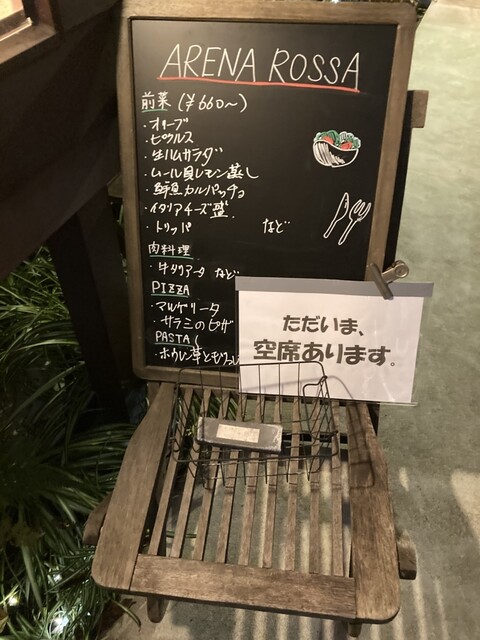 ARENA ROSSA
前菜 (¥660〜)
・オリーブ
・ピクルス
・生ハムサラダ
・ムール貝レモン蒸し
・鮮魚カルパッチョ
・イタリアチーズ盛
・トリッパ など
肉料理
・牛タリアータ など
PIZZA
・マルゲリータ
・サラミのピザ
PASTA
・ホウレン草と
ただいま、
空席あります。